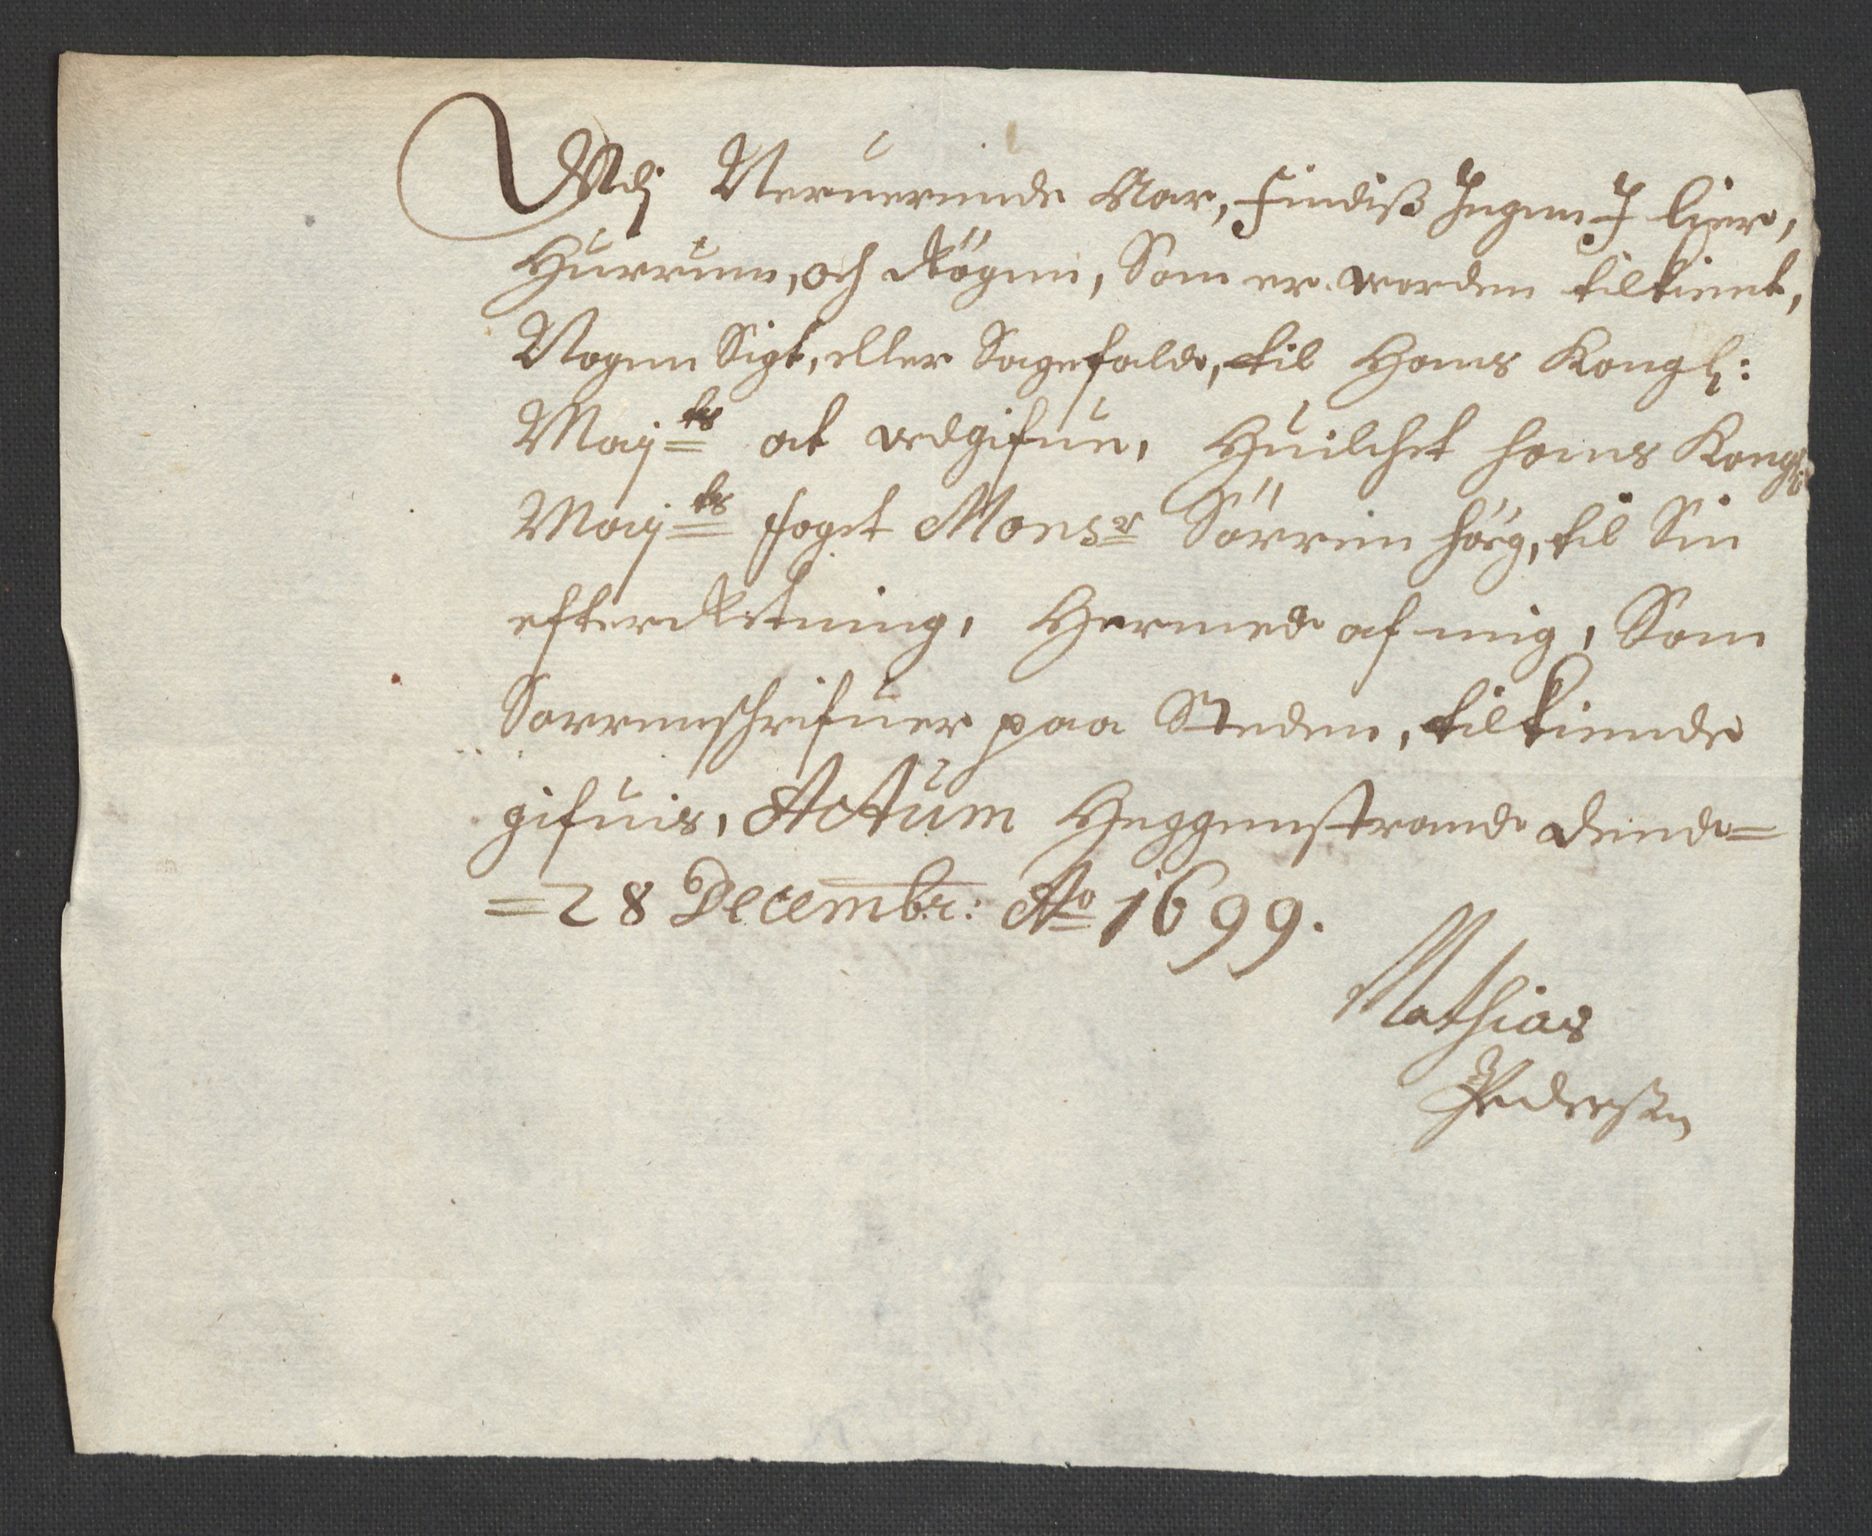 Udj Neruerende Aar, findiß Ingen I lier,
Hurrum, och Rögen, Som er worden tiltient,
Nogen Sigt, eller Sagefald, til Hans Kongl:
Maytts at udgifue, Huilchet hans Kongl:
Maytts foget Monsr Sörren hörg, til Sin
efterRetning, Hermed af mig, Som
Sorrenschrifuer paa Steden, tilkiende
gifuis, Actum Heggenstrand dend=
=28 Decembr: Ao 1699.
Mathias
Pederßen